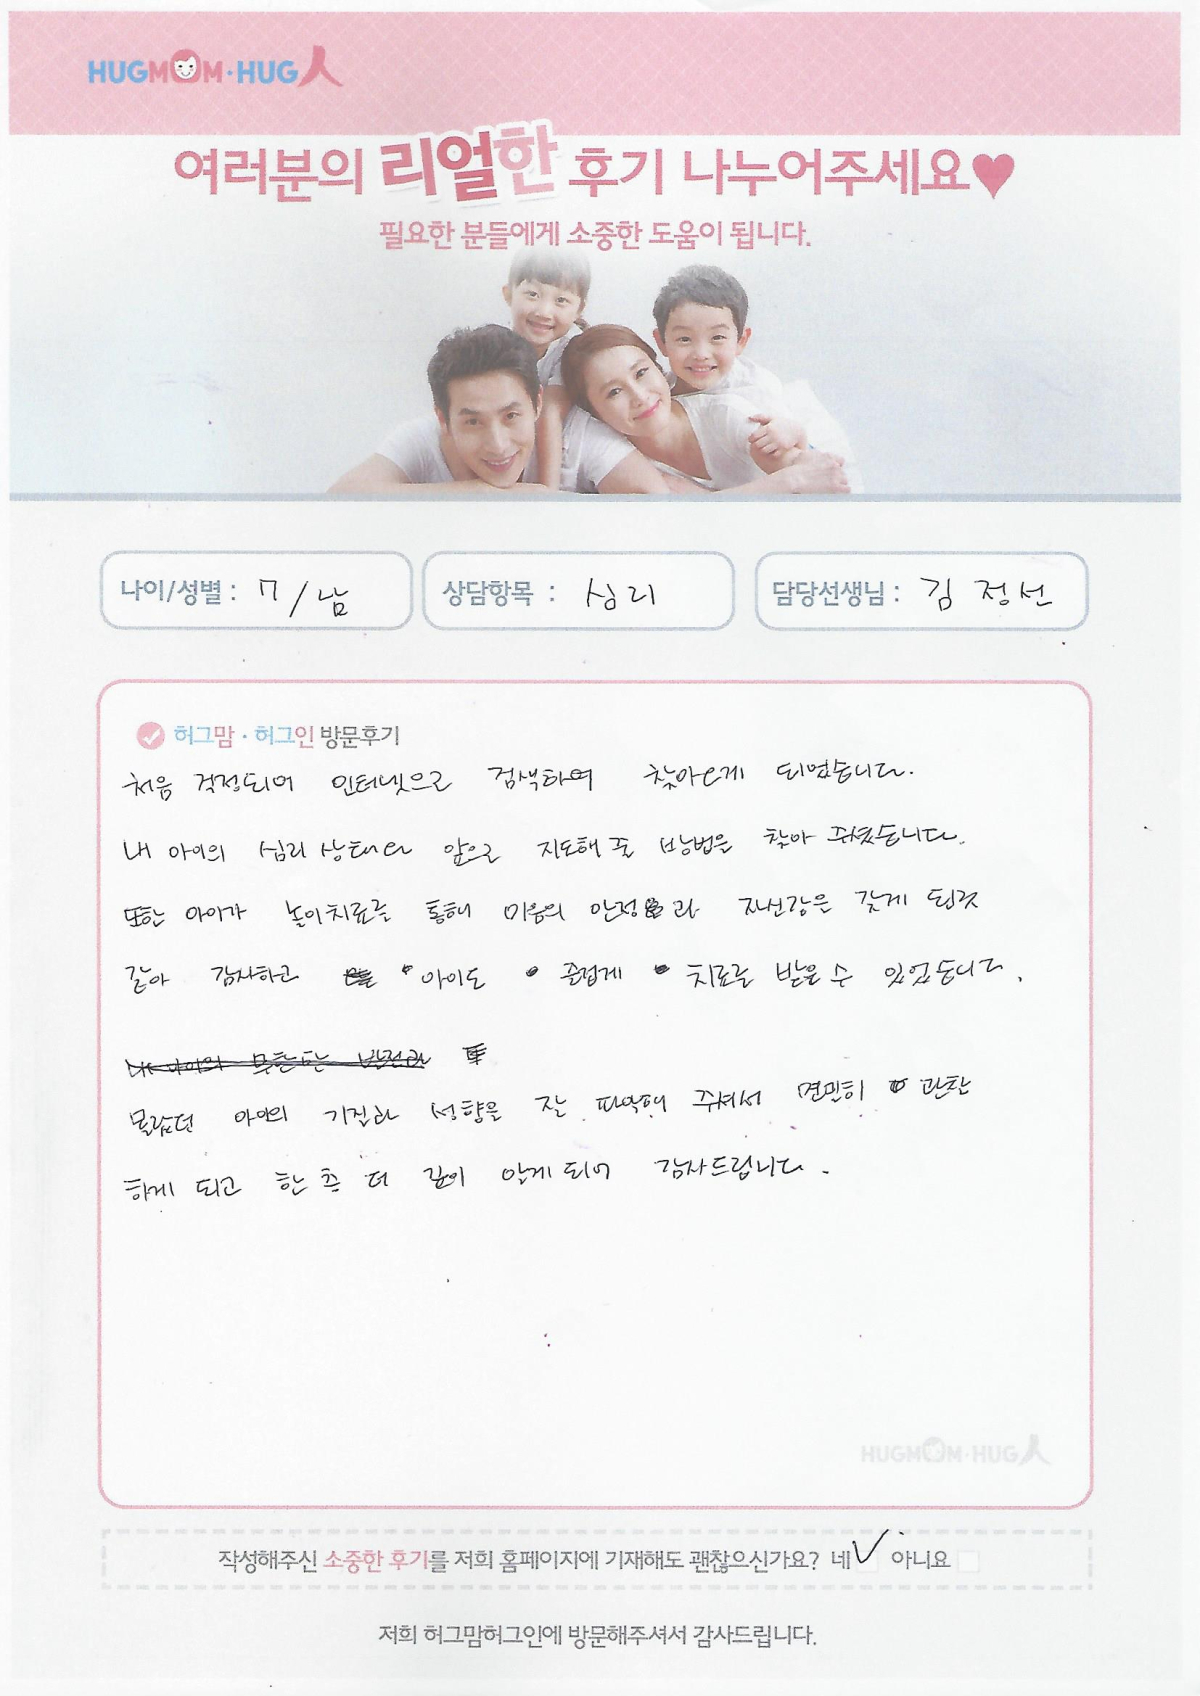 HUGMOM·HUG人
여러분의 리얼한 후기 나누어주세요♥
필요한 분들에게 소중한 도움이 됩니다.
나이/성별 : 7/남 상담항목 : 심리 담당선생님 : 김정선
허그맘·허그인 방문후기
처음 걱정되어 인터넷으로 검색하여 찾아오게 되었습니다.
내 아이의 심리상태와 앞으로 지도해 줄 방법을 찾아 주셨습니다.
또한 아이가 놀이치료를 통해 마음의 안정과 자신감을 갖게 된것
같아 감사하고 아이도 즐겁게 치료를 받을 수 있었습니다.
몰랐던 아이의 기질과 성향을 잘 파악해 주셔서 면밀히 관찰
하게 되고 한층 더 깊이 알게 되어 감사드립니다.
HUGMOM·HUG人
작성해주신 소중한 후기를 저희 홈페이지에 기재해도 괜찮으신가요? 네 ✓ 아니요
저희 허그맘허그인에 방문해주셔서 감사드립니다.